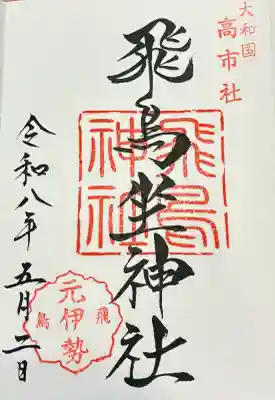 大和国
高市社
飛鳥坐神社
飛鳥
神社
飛鳥
元伊勢
令和八年 五月二日